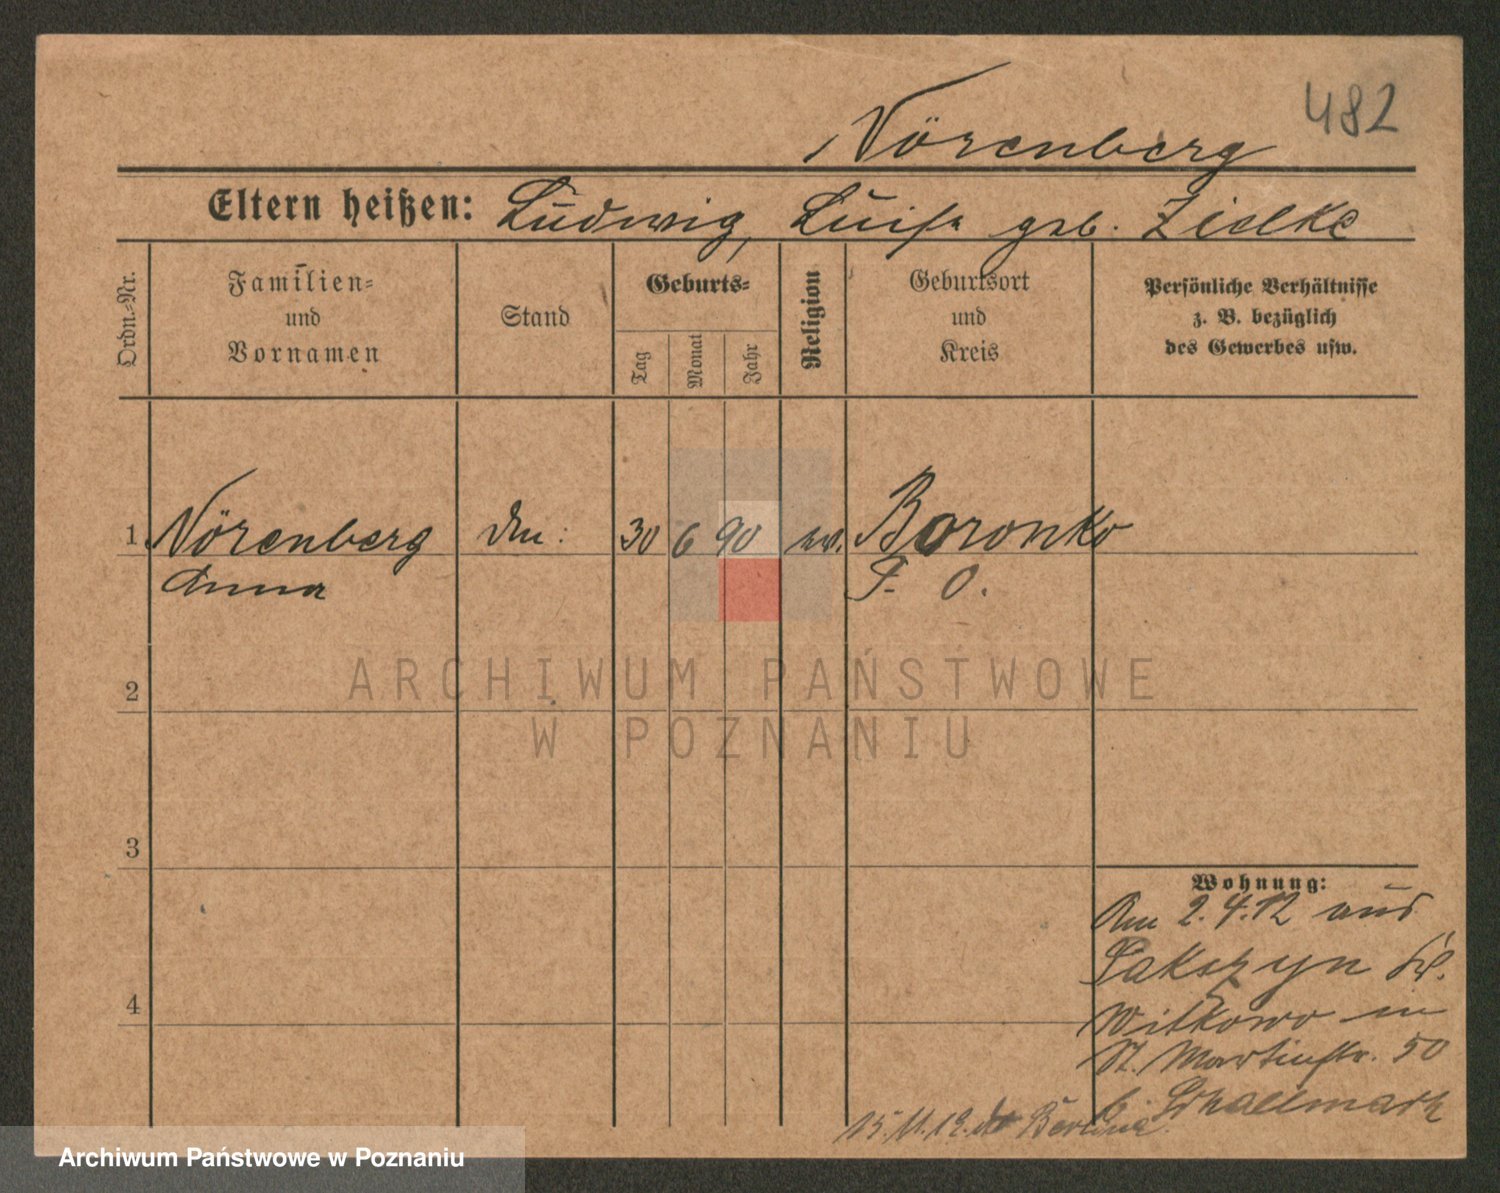 482
Nörenberg
Eltern heißen: Ludwig, Luise geb. Zielke
Ordn.-Nr.
Familien-
und
Vornamen
Stand
Geburts-
Tag
Monat
Jahr
Religion
Geburtsort
und
Kreis
Persönliche Verhältnisse
z. B. bezüglich
des Gewerbes usw.
1 Nörenberg 30 6 90 ev. Boronko
Anna F. O.
2
3
4
Wohnung:
Am 2.4.12 aus
Witkowo in
St. Martinstr. 50
b. Schallmach
15.11.12.
ARCHIWUM PAŃSTWOWE
W POZNANIU
Archiwum Państwowe w Poznaniu